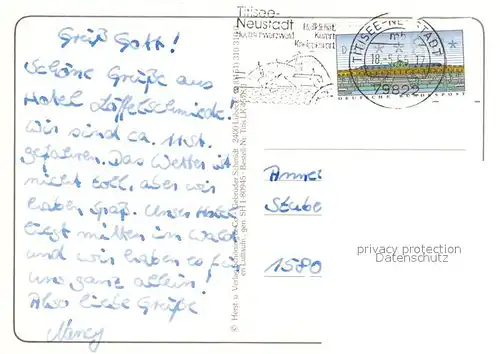 Grüß Gott!
Schöne Grüße aus
Hotel Löffelschmiede!
Wir sind ca. 11 St.
gefahren. Das Wetter ist
nicht toll, aber wir
haben Spaß. Unser Hotel
liegt mitten im Wald
und wir haben es für
uns ganz allein!
Also liebe Grüße
Nancy
Titisee-
Neustadt
Hochschwarzwald
Kurort
TITISEE-NEUSTADT
mh
18.-5.95-17
79822
DEUTSCHE BUNDESPOST
Anne
Stube
1580
privacy protection
Datenschutz